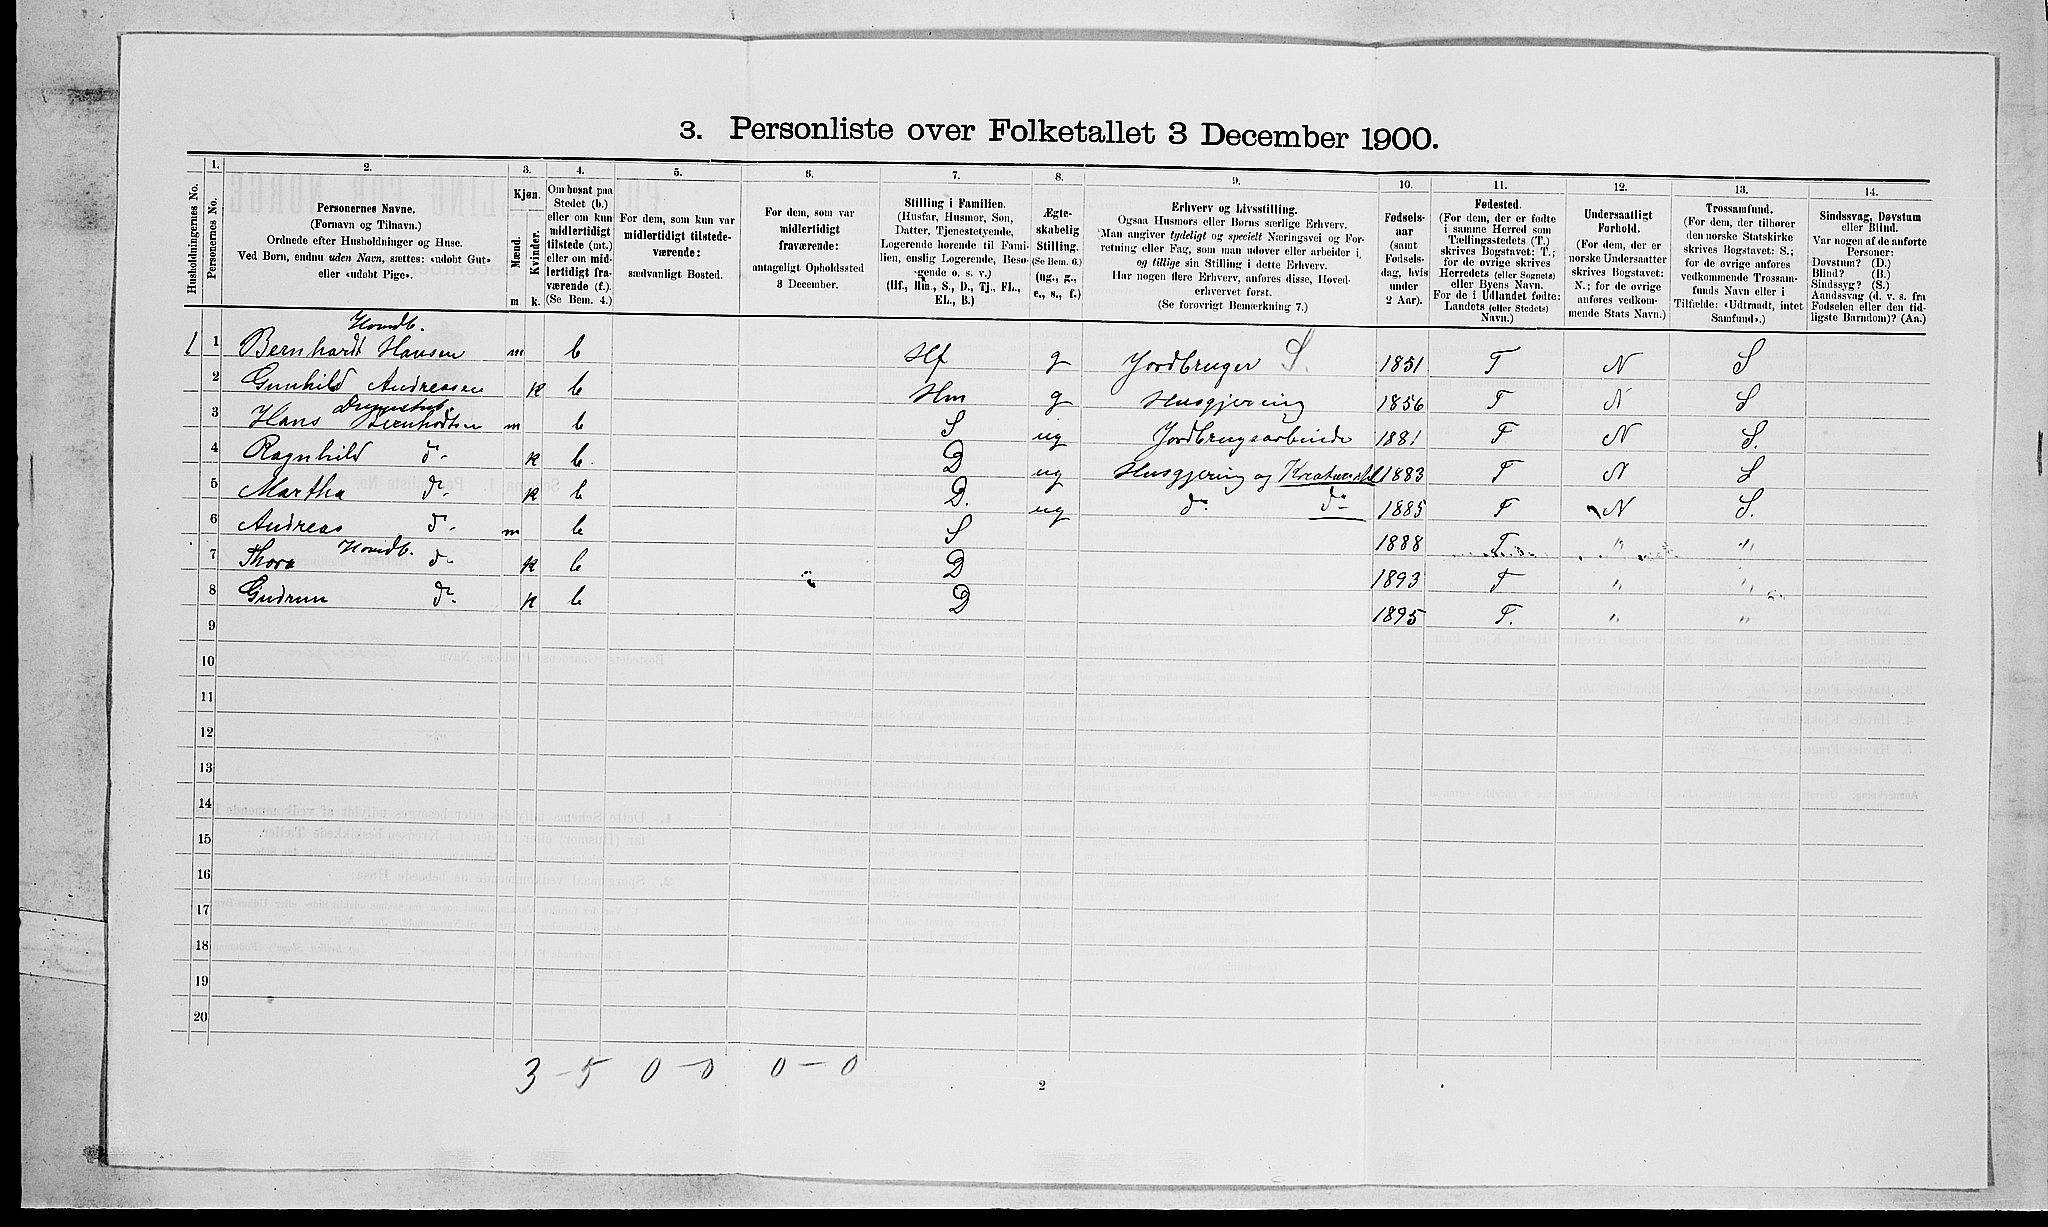 3. Personliste over Folketallet 3 December 1900.
Husholdningernes No.
1.
Personernes No.
2.
Personernes Navne.
(Fornavn og Tilnavn.)
Ordnede efter Husholdninger og Huse.
Ved Børn, endnu uden Navn, sættes: «udøbt Gut»
eller «udøbt Pige».
3.
Kjøn.
Mænd.
Kvinder.
m
k.
4.
Om bosat paa
Stedet (b.)
eller om kun
midlertidigt
tilstede (mt.)
eller om mid-
lertidigt fra-
værende (f.).
(Se Bem. 4.)
5.
For dem, som kun var
midlertidigt tilstede-
værende:
sædvanligt Bosted.
6.
For dem, som var
midlertidigt
fraværende:
antageligt Opholdssted
3 December.
7.
Stilling i Familien.
(Husfar, Husmor, Søn,
Datter, Tjenestetyende,
Logerende hørende til Fami-
lien, enslig Logerende, Besø-
gende o. s. v.)
(Hf., Hm., S., D., Tj., FL.,
EL., B.)
8.
Ægte-
skabelig
Stilling.
(Se Bem. 6.)
(ug., g.,
e., s., f.)
9.
Erhverv og Livsstilling.
Ogsaa Husmors eller Børns særlige Erhverv.
Man angiver tydeligt og specielt Næringsvei og For-
retning eller Fag, som man udøver eller arbeider i,
og tillige sin Stilling i dette Erhverv.
Har nogen flere Erhverv, anføres disse, Hoved-
erhvervet først.
(Se forøvrigt Bemærkning 7.)
10.
Fødsels-
aar
(samt
Fødsels-
dag, hvis
under
2 Aar).
11.
Fødested.
(For dem, der er fødte
i samme Herred som
Tællingsstedets (T.)
skrives Bogstavet: T.;
for de øvrige skrives
Herredets (eller Sognets)
eller Byens Navn.
For de i Udlandet fødte:
Landets (eller Stedets)
Navn.)
12.
Undersaatligt
Forhold.
(For dem, der er
norske Undersaatter
skrives Bogstavet:
N.; for de øvrige
anføres vedkom-
mende Stats Navn.)
13.
Trossamfund.
(For dem, der tilhører
den norske Statskirke
skrives Bogstavet: S.;
for de øvrige anføres
vedkommende Trossam-
funds Navn eller i
Tilfælde: «Udtraadt, intet
Samfund».)
14.
Sindssvag, Døvstum
eller Blind.
Var nogen af de anførte
Personer:
Døvstum? (D.)
Blind? (B.)
Sindssyg? (S.)
Aandssvag (d. v. s. fra
Fødselen eller den tid-
ligste Barndom)? (Aa.)
Hovedb.
1 1 Bernhardt Hansen m b Hf g Jordbruger S. 1851 T N S
2 Gunhild Andreasen k b Hm g Husgjerning 1856 T N S
3 Hans Bernhodtsen m b S ug Jordbrugsarbeide 1881 T N S.
4 Ragnhild do k b. D ug Husgjerning og Kreaturstel 1883 T N S
5 Martha do k b D. ug do do 1885 T N S.
6 Andreas do m b S 1888 T " "
Hovedb.
7 Thora do k b D 1893 T " "
8 Gudrun do k b D 1895 T. " "
9
10
11
12
13
14
15
16
17
18
19
20
3 - 5 0 - 0 0 - 0
2